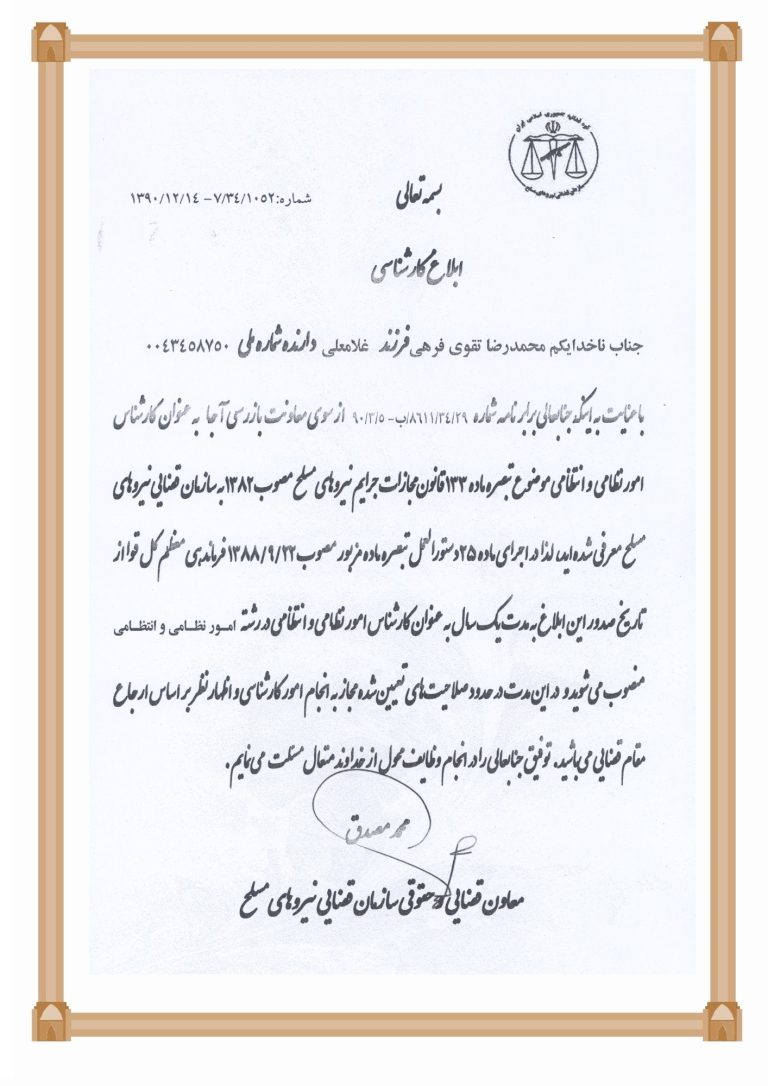 قوه قضائیه جمهوری اسلامی ایران
سازمان قضایی نیروهای مسلح
بسمه تعالی
شماره:۷/۳۴/۱۰۵۲ – ۱۳۹۰/۱۲/۱۴
ابلاغ کارشناسی
جناب ناخدایکم محمدرضا تقوی فرهی فرزند غلامعلی دارنده شماره ملی ۰۰۴۳۴۵۸۷۵۰
با عنایت به اینکه جنابعالی برابر نامه شماره ۸۶۱۱/۳۴/۲۹/ب- ۹۰/۳/۵ از سوی معاونت بازرسی آجا به عنوان کارشناس
امور نظامی و انتظامی موضوع تبصره ماده ۱۳۳ قانون مجازات جرایم نیروهای مسلح مصوب ۱۳۸۲ به سازمان قضایی نیروهای
مسلح معرفی شده اید، لذا در اجرای ماده ۲۵ دستورالعمل تبصره ماده مزبور مصوب ۱۳۸۸/۹/۲۲ فرماندهی معظم کل قوا از
تاریخ صدور این ابلاغ به مدت یک سال به عنوان کارشناس امور نظامی و انتظامی در رشته امـور نظـامی و انتظـامی
منصوب می شوید و در این مدت در حدود صلاحیت های تعیین شده مجاز به انجام امور کارشناسی و اظهار نظر بر اساس ارجاع
مقام قضایی می باشید. توفیق جنابعالی را در انجام وظایف محول از خداوند متعال مسئلت می نمایم.
محمد مصدق
معاون قضایی و حقوقی سازمان قضایی نیروهای مسلح